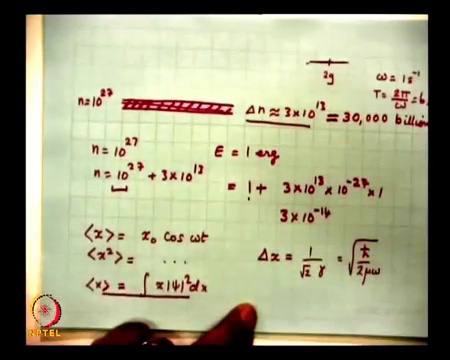 2g
ω = 1 s⁻¹
T = 2π/ω = 6.
n=10²⁷
Δn ≈ 3×10¹³ = 30,000 billion
n = 10²⁷
E = 1 erg
n = 10²⁷ + 3×10¹³
= 1 + 3×10¹³ × 10⁻²⁷ × 1
3×10⁻¹⁴
<x> = x₀ cos ωt
<x²> = ...
Δx = 1/√2 γ = √(ħ/2μω)
<x> = ∫ x|ψ|² dx
NPTEL